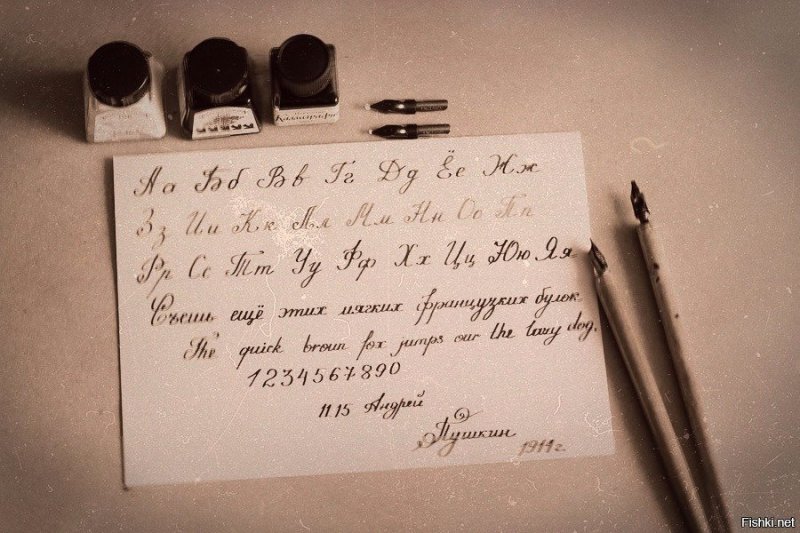 Каллиграфъ
Аа Бб Вв Гг Дд Ёе Жж
Зз Ии Кк Лл Мм Нн Оо Пп
Рр Сс Тт Уу Фф Хх Цц Юю Яя
Съешь ещё этих мягких французских булок
The quick broun fox jumps our the lawy dog.
1234567890
11.15 Андрей
Пушкин
1911 г.
Fishki.net